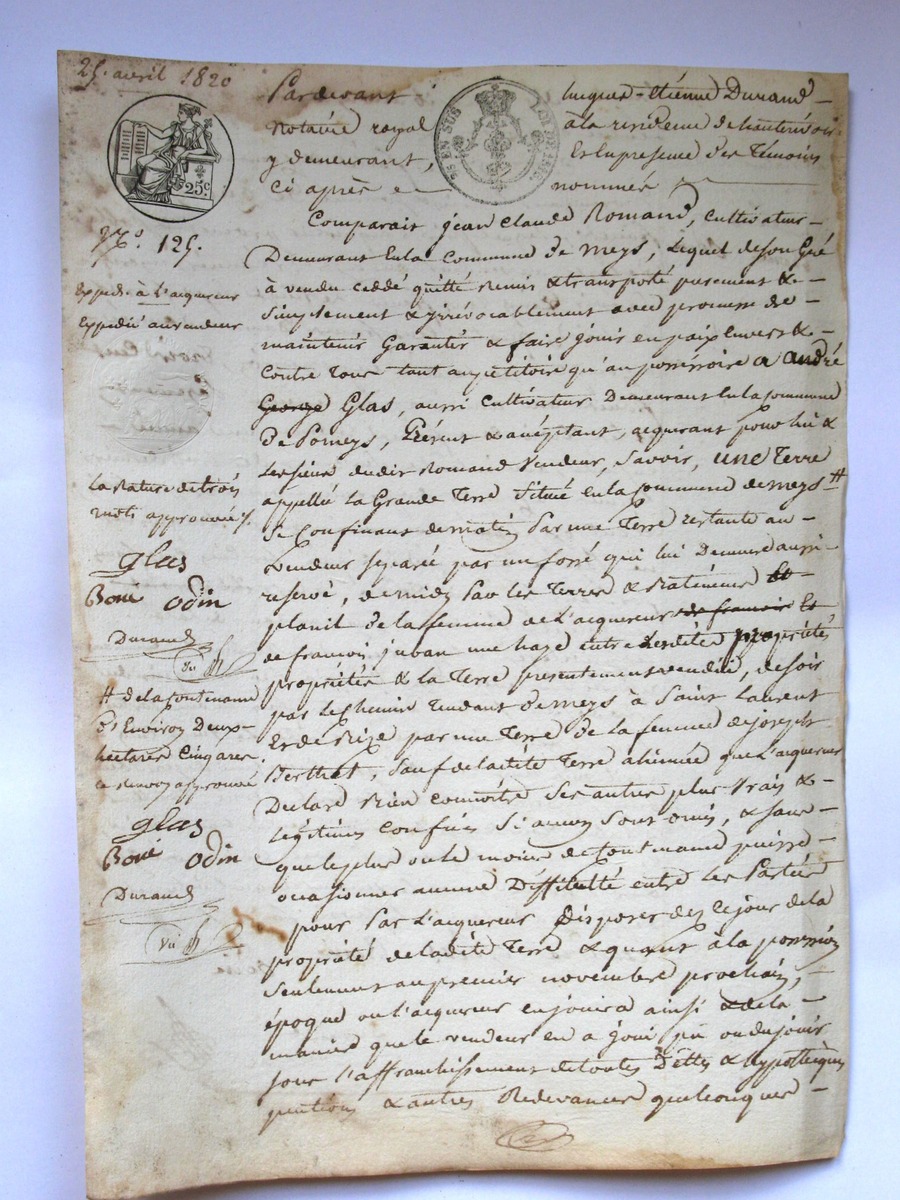 25. avril 1820
25c.
N.o 125.
Expédié à l'acquereur
Expédié au vendeur
Pardevant Etiénne Durand
Notaire royal à la residence de
y demeurant, Et en presence des Témoins
Ci après nommés
Comparait jean Claude Romand, cultivateur
Demeurant En la Commune de meys, Lequel de son Gré
à vendu ceddé quitté remis & transporté purement &
simplement & irrévocablement avec promesse de
maintenir Garantir & faire jouir en paix Envers &
Contre Tous tant au petitoire qu'au possessoire a andré
George Glas, aussi Cultivateur Demeurant En la Commune
de Pomeys, Présent & acceptant, acquerant pour lui &
Les siens dudit Romand Vendeur, Savoir, une Terre
appellée La Grande Terre Située En la Commune de meys #
Se Confinant de matin Par une Terre restante au
Vendeur separée par un fossé qui lui Demeure aussi
reservé, de midy Par les Terres &
de la femme de L'acquereur de francois Et
de francois une haye entre propriétés
propriétés & la Terre presentement vendue, de soir
par Le Chemin Tendant de meys à Saint Laurent
Et de Bize par une Terre De la femme de joseph
Berthet, Sauf de la dite Terre alienée que L'acquereur
Declare Bien connoitre Ses autres plus vrais &
Legitimes Confins Si aucun Sont omis, & sans
que le plus ou le moins de Contenance puisse
occasionner aucune Difficulté entre les Parties
pour Par L'acquereur Disposer dez ce jour de la
propriété de la dite Terre & quant à la possession
Seulement au premier novembre prochain,
époque ou l'acquereur en jouira ainsi & de la
maniere que le vendeur en a joui pû ou du jouir
sous l'affranchissement de toutes Dettes & hypotheques
pentions & autres Redevances quelconques
La Rature de trois
mots approuvée
glas
Boué odin
Durand
Vu
# de la Contenance
D'Environ Deux
hectares Cinq ares
ce renvoy approuvé
glas
Boué odin
Durand
Vu